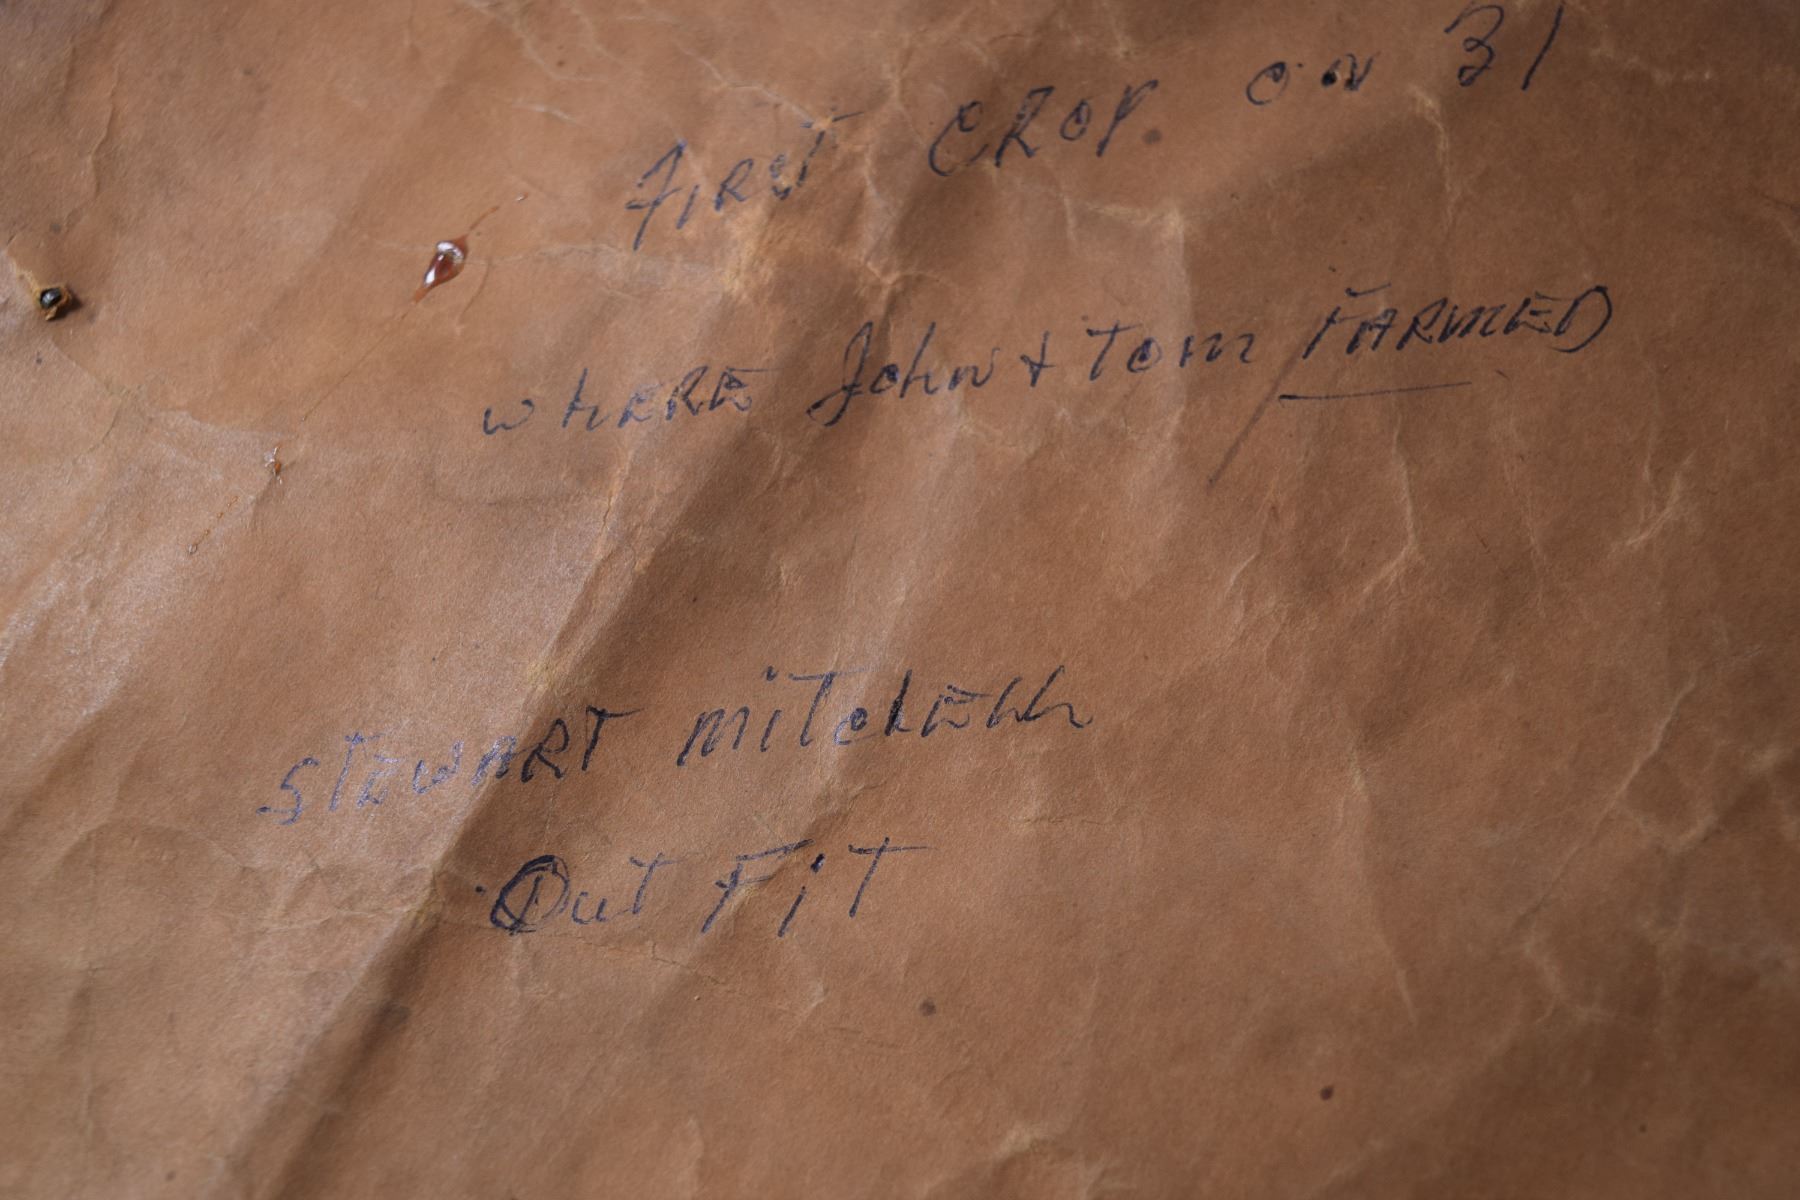 FIRST CROP ON 31
WHERE John + Tom FARMED
STEWART MITCHELL
OUT FIT